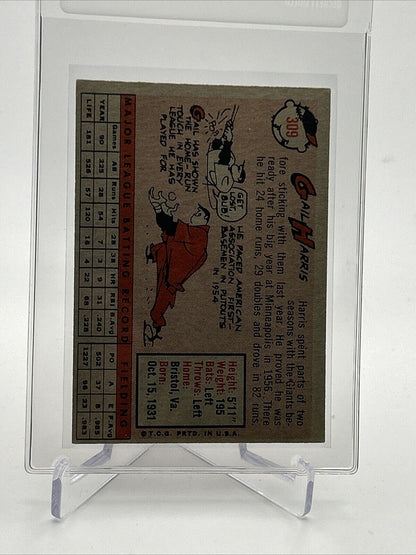 309
GAIL HARRIS
Harris spent parts of two
seasons with the Giants be-
fore sticking with them last year. He proved he was
ready after his big year at Minneapolis in 1956. There
he hit 24 home runs, 29 doubles and drove in 82 runs.
GAIL HAS SHOWN
THE HOME-RUN
TOUCH IN EVERY
LEAGUE HE HAS
PLAYED FOR
GET
LOST,
BUB
HE PACED AMERICAN
ASSOCIATION FIRST-
BASEMEN IN PUTOUTS
IN 1954
Height: 5'11"
Weight: 195
Bats: Left
Throws: Left
Home:
Bristol, Va.
Born:
Oct. 15, 1931
MAJOR LEAGUE BATTING RECORD FIELDING
Games AB Runs Hits 2B 3B HR RBI B.Avg PO A E F.Avg
YEAR 90 225 28 54 7 3 9 31 .240 502 37 8 .985
LIFE 181 526 57 120 16 4 22 68 .228 1227 86 23 .983
© T.C.G. PRTD. IN U.S.A.